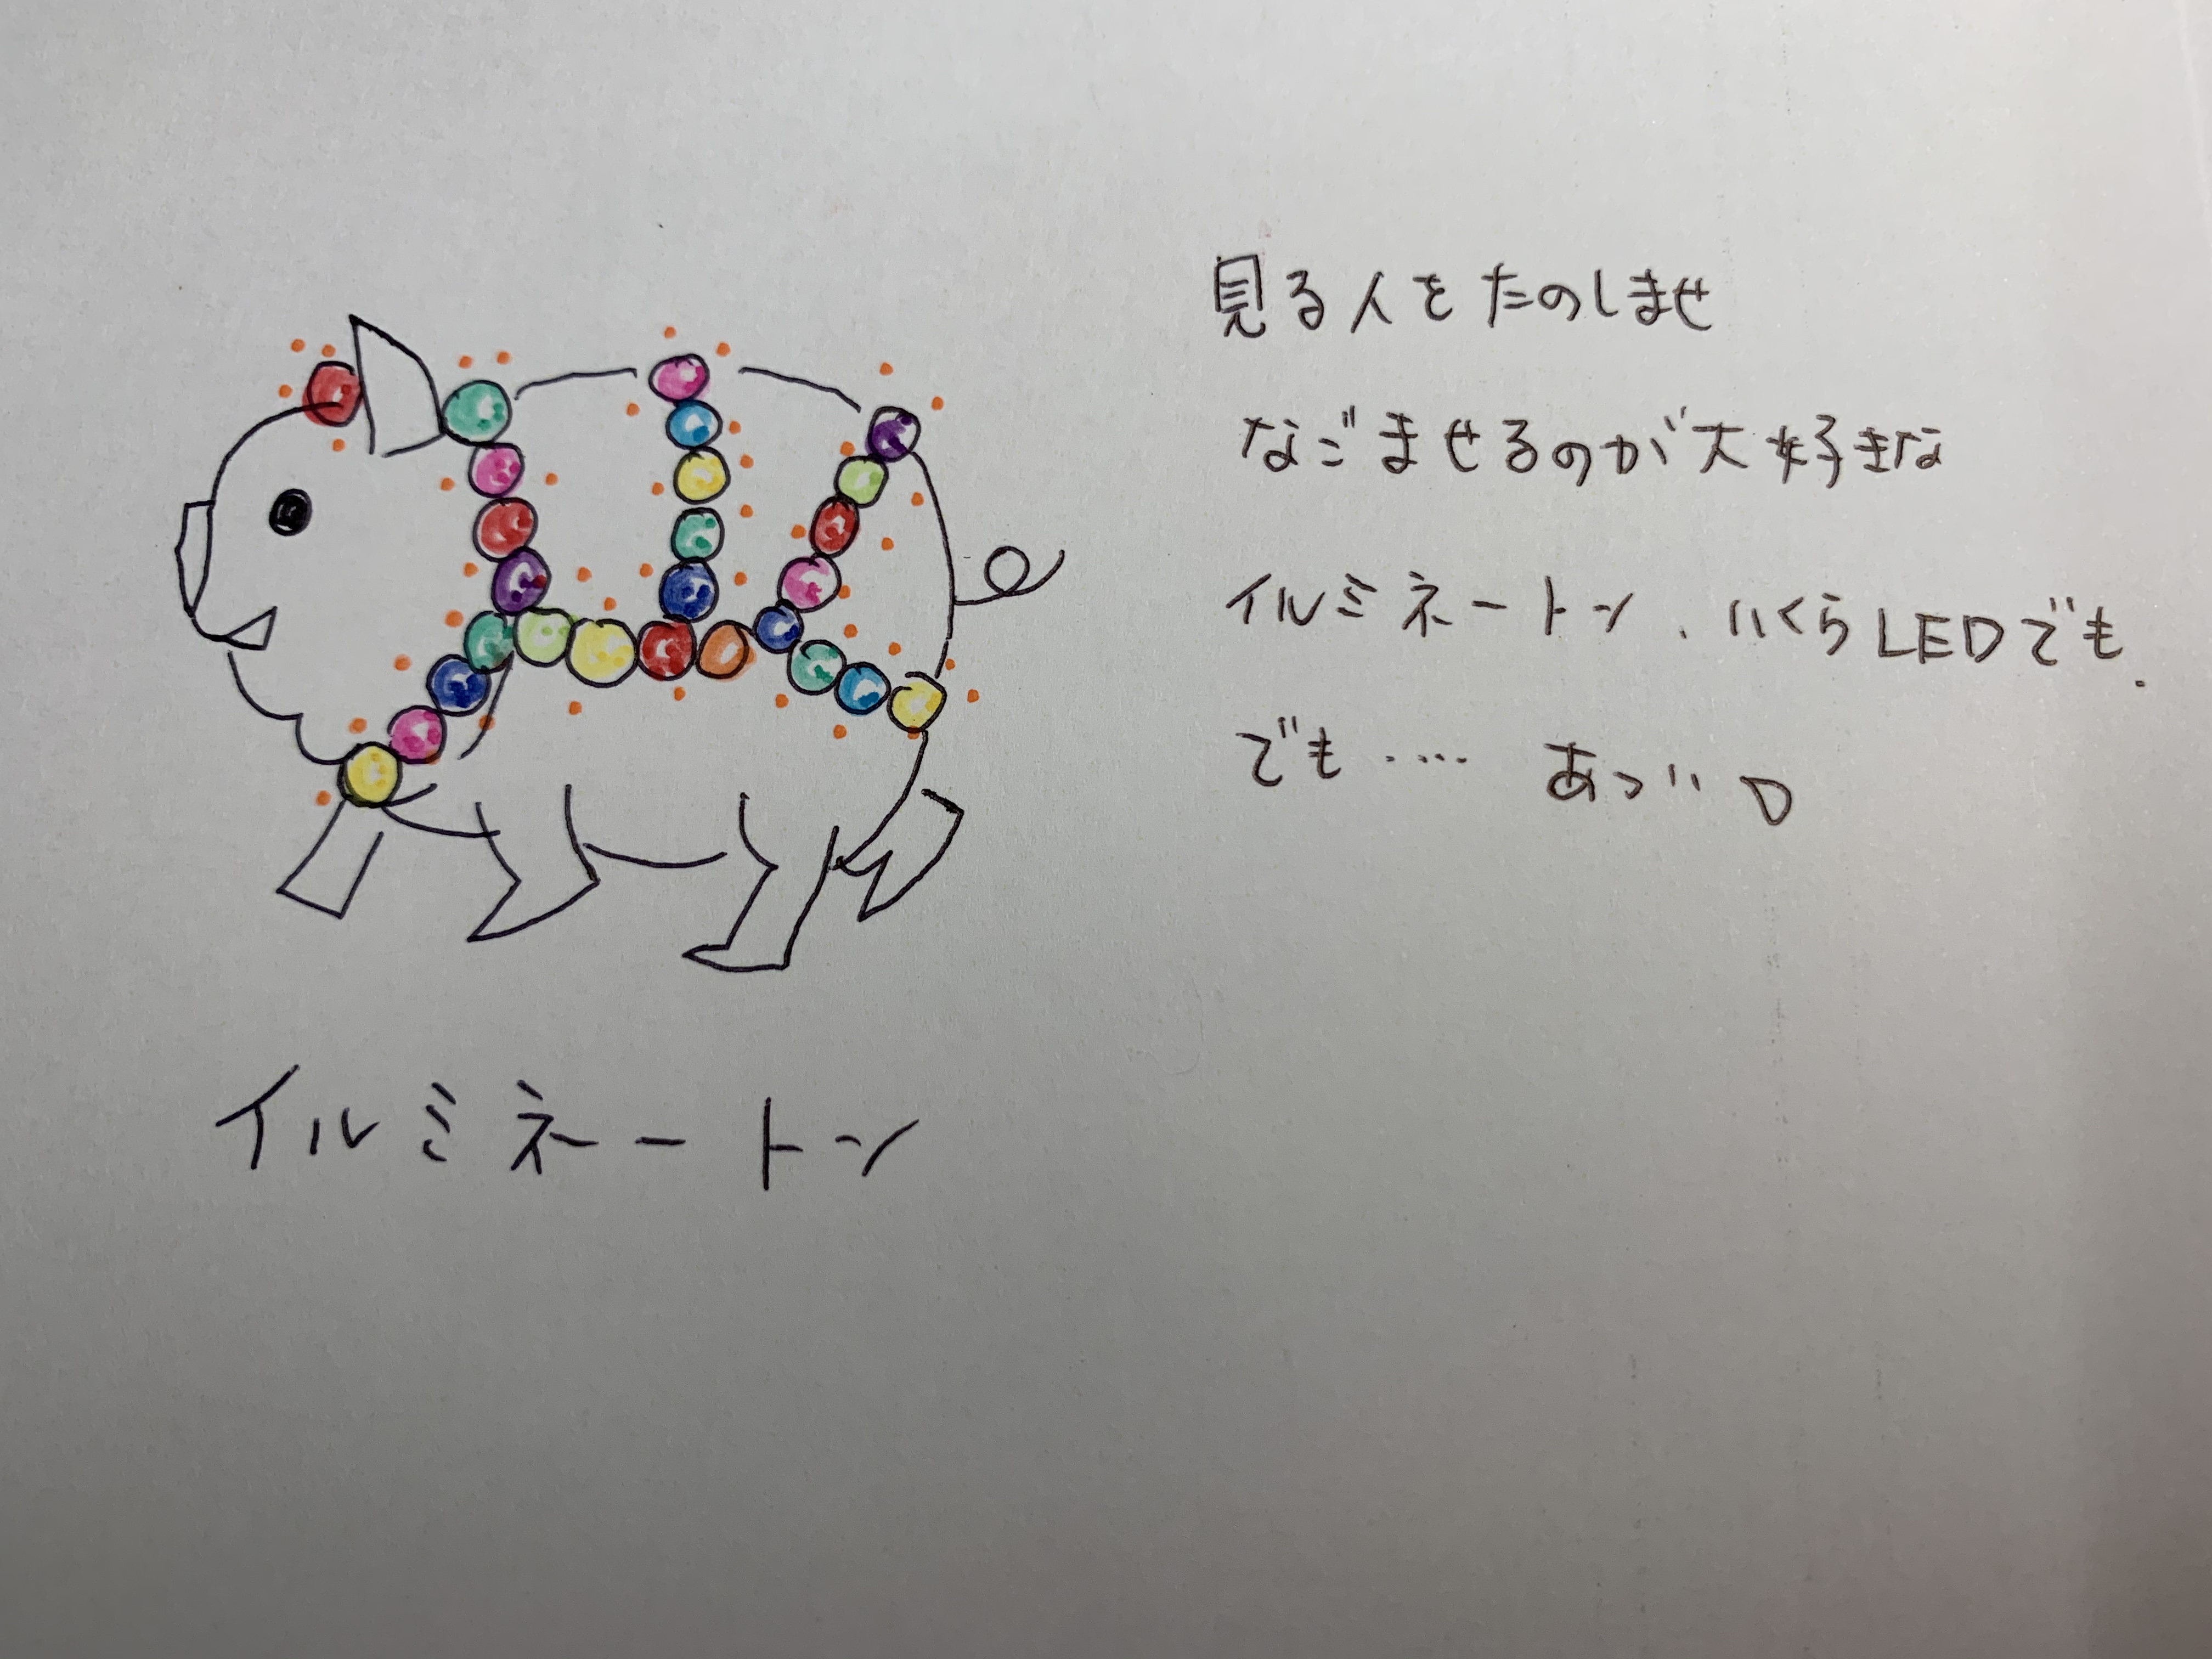 見る人をたのしませ
なごませるのが大好きな
イルミネートン、いくらLEDでも、
でも‥‥ あつい。
イルミネートン